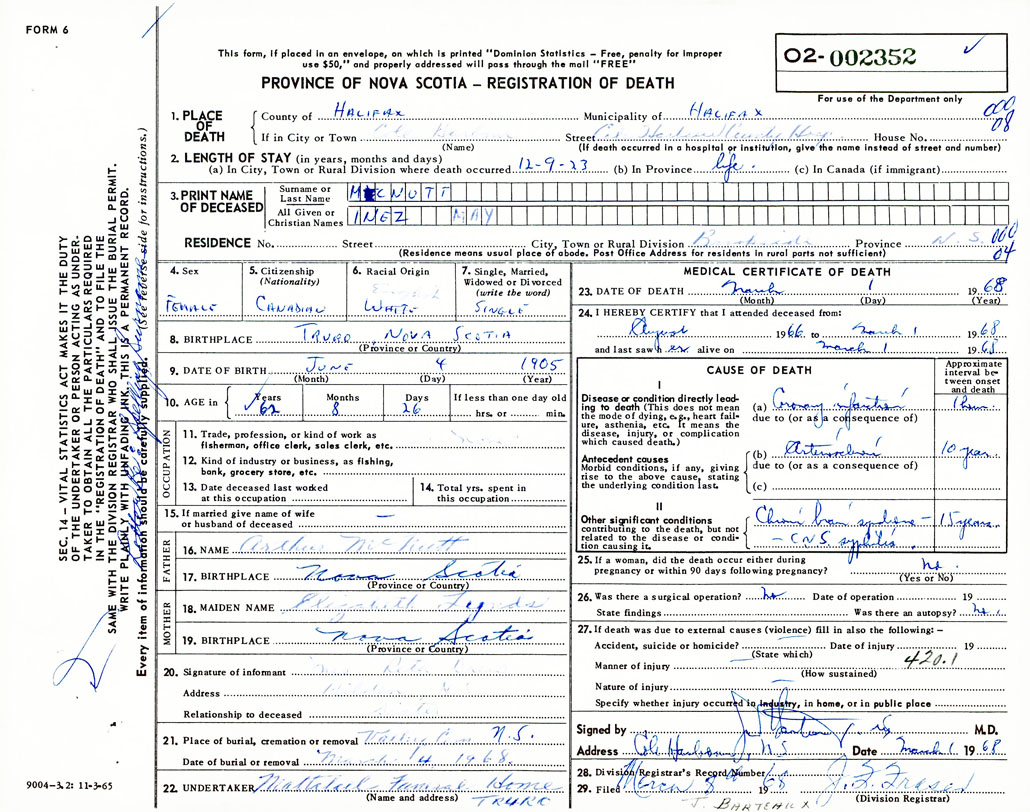 FORM 6
This form, if placed in an envelope, on which is printed "Dominion Statistics – Free, penalty for improper
use $50," and properly addressed will pass through the mail "FREE"
PROVINCE OF NOVA SCOTIA – REGISTRATION OF DEATH
02-002352 ✓
For use of the Department only
000
08
1. PLACE OF DEATH
County of HALIFAX Municipality of HALIFAX
If in City or Town Street House No.
(Name) (If death occurred in a hospital or institution, give the name instead of street and number)
2. LENGTH OF STAY (in years, months and days)
(a) In City, Town or Rural Division where death occurred 12-9-23 (b) In Province life. (c) In Canada (if immigrant)
3. PRINT NAME OF DECEASED
Surname or Last Name MCNUTT
All Given or Christian Names INEZ MAY
RESIDENCE No. Street City, Town or Rural Division Province N.S. 000
04
(Residence means usual place of abode. Post Office Address for residents in rural parts not sufficient)
4. Sex
FEMALE
5. Citizenship
(Nationality)
CANADIAN
6. Racial Origin
WHITE
7. Single, Married,
Widowed or Divorced
(write the word)
SINGLE
8. BIRTHPLACE TRURO NOVA SCOTIA
(Province or Country)
9. DATE OF BIRTH JUNE 4 1905
(Month) (Day) (Year)
10. AGE in Years 62 Months 8 Days 26 If less than one day old
hrs. or min.
OCCUPATION
11. Trade, profession, or kind of work as
fisherman, office clerk, sales clerk, etc.
12. Kind of industry or business, as fishing,
bank, grocery store, etc.
13. Date deceased last worked
at this occupation
14. Total yrs. spent in
this occupation
15. If married give name of wife
or husband of deceased —
FATHER
16. NAME Arthur McNutt
17. BIRTHPLACE Nova Scotia
(Province or Country)
MOTHER
18. MAIDEN NAME Elizabeth
19. BIRTHPLACE Nova Scotia
(Province or Country)
20. Signature of informant
Address
Relationship to deceased
21. Place of burial, cremation or removal N.S.
Date of burial or removal March 4 1968.
22. UNDERTAKER Mattatall Funeral Home
(Name and address) TRURO
MEDICAL CERTIFICATE OF DEATH
23. DATE OF DEATH March 1 1968
(Month) (Day) (Year)
24. I HEREBY CERTIFY that I attended deceased from:
August 1966 to March 1 1968
and last saw her alive on March 1 1968
CAUSE OF DEATH
Approximate interval between onset and death
I
Disease or condition directly leading to death (This does not mean the mode of dying, e.g., heart failure, asthenia, etc. It means the disease, injury, or complication which caused death.)
(a) Coronary infarction 1 hour.
due to (or as a consequence of)
Antecedent causes
Morbid conditions, if any, giving rise to the above cause, stating the underlying condition last.
(b) 10 years
due to (or as a consequence of)
(c)
II
Other significant conditions contributing to the death, but not related to the disease or condition causing it.
Chronic brain syndrome – 15 years.
– CNS syphilis.
25. If a woman, did the death occur either during
pregnancy or within 90 days following pregnancy? no.
(Yes or No)
26. Was there a surgical operation? no Date of operation 19
State findings Was there an autopsy? no.
27. If death was due to external causes (violence) fill in also the following: –
Accident, suicide or homicide? Date of injury 19
(State which)
420.1
Manner of injury —
(How sustained)
Nature of injury
Specify whether injury occurred in industry, in home, or in public place
Signed by M.D.
Address Cole Harbour, N.S Date March 1 1968
28. Division Registrar's Record Number
29. Filed March 8th 1968 J. F. Fraser
(Division Registrar)
J. BARTEAUX
SEC. 14 – VITAL STATISTICS ACT MAKES IT THE DUTY
OF THE UNDERTAKER OR PERSON ACTING AS UNDER-
TAKER TO OBTAIN ALL THE PARTICULARS REQUIRED
IN THE "REGISTRATION OF DEATH" AND TO FILE THE
SAME WITH THE DIVISION REGISTRAR WHO SHALL ISSUE THE BURIAL PERMIT.
WRITE PLAINLY WITH UNFADING INK. THIS IS A PERMANENT RECORD.
Every item of information should be carefully supplied. (See reverse side for instructions.)
9004–3.2: 11-3-65